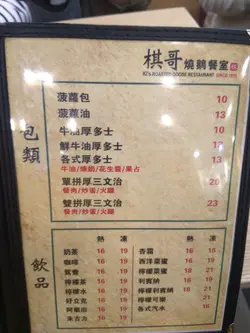 棋哥燒鵝餐室
KI'S ROASTED GOOSE RESTAURANT
包類
菠蘿包 10
菠蘿油 13
牛油厚多士 10
鮮牛油厚多士 13
各式厚多士 13
牛油/煉奶/花生醬/果占
單拼厚三文治 20
餐肉/炒蛋/火腿
雙拼厚三文治 23
餐肉/炒蛋/火腿
飲品
熱 凍
奶茶 16 19
咖啡 16 19
鴛鴦 16 19
檸檬茶 16 19
檸檬水 16 19
好立克 16 19
阿華田 16 19
朱古力 16 19
熱 凍
杏霜 16 19
西洋菜蜜 16 19
檸檬菜蜜
利賓納 16 19
檸檬利賓納
檸檬可樂
各式汽水